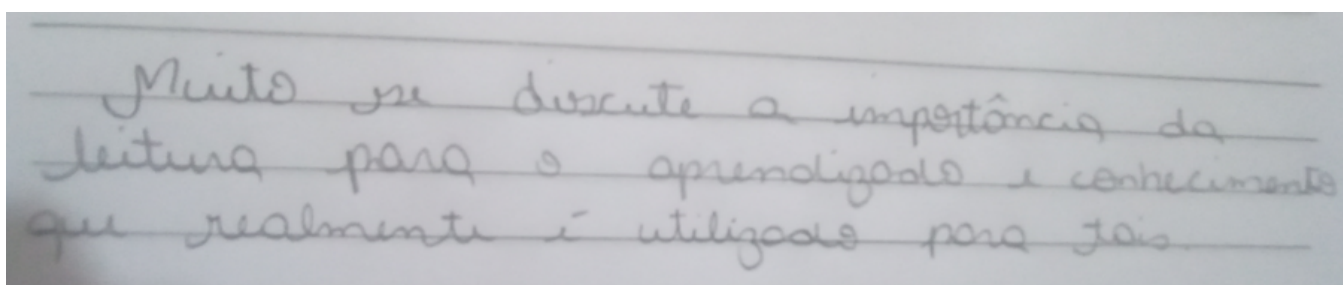 Muito se discute a importância da
leitura para o aprendizado e conhecimento
que realmente é utilizado para tais